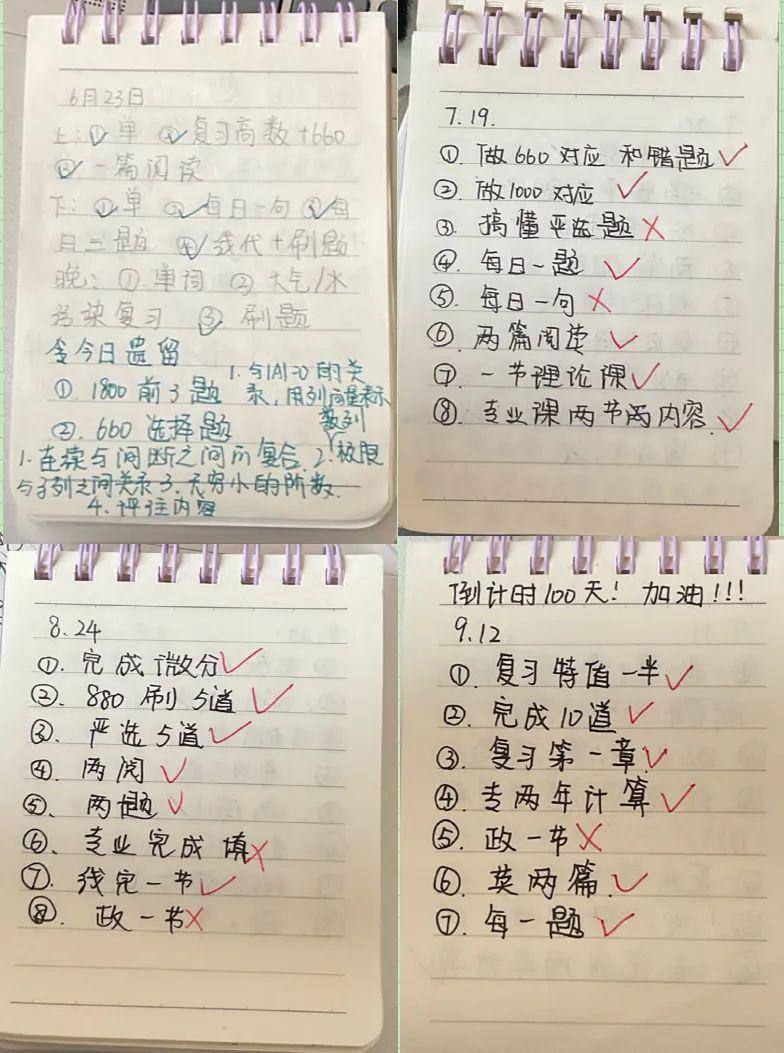 6月23日
上:① 单 ② 复习高数+660
③ 一篇阅读
下:① 单 ② 每日一句 ③ 每
日三题 ④ 线代+刷题
晚:① 单词 ② 大气/水
污染复习 ③ 刷题
今日遗留
① 1800 前3题
1. 与|A|=0的关
系,用列向量表示
② 660 选择题
数列
1. 连续与间断之间的复合 2. 极限
与子列之间关系 3. 无穷小的阶数.
4. 评注内容
7.19.
①. 做660对应 和错题
②. 做1000对应
③. 搞懂严选题
④. 每日一题
⑤. 每日一句
⑥. 两篇阅读
⑦. 一节理论课
⑧. 专业课两节两内容.
8.24
①. 完成微分
②. 880 刷5道
③. 严选5道
④. 两阅
⑤. 两题
⑥. 专业完成 填
⑦. 线完一节
⑧. 政一节
倒计时100天! 加油!!!
9.12
①. 复习特值一半
②. 完成10道
③. 复习第一章
④. 专两年计算
⑤. 政一节
⑥. 英两篇.
⑦. 每一题